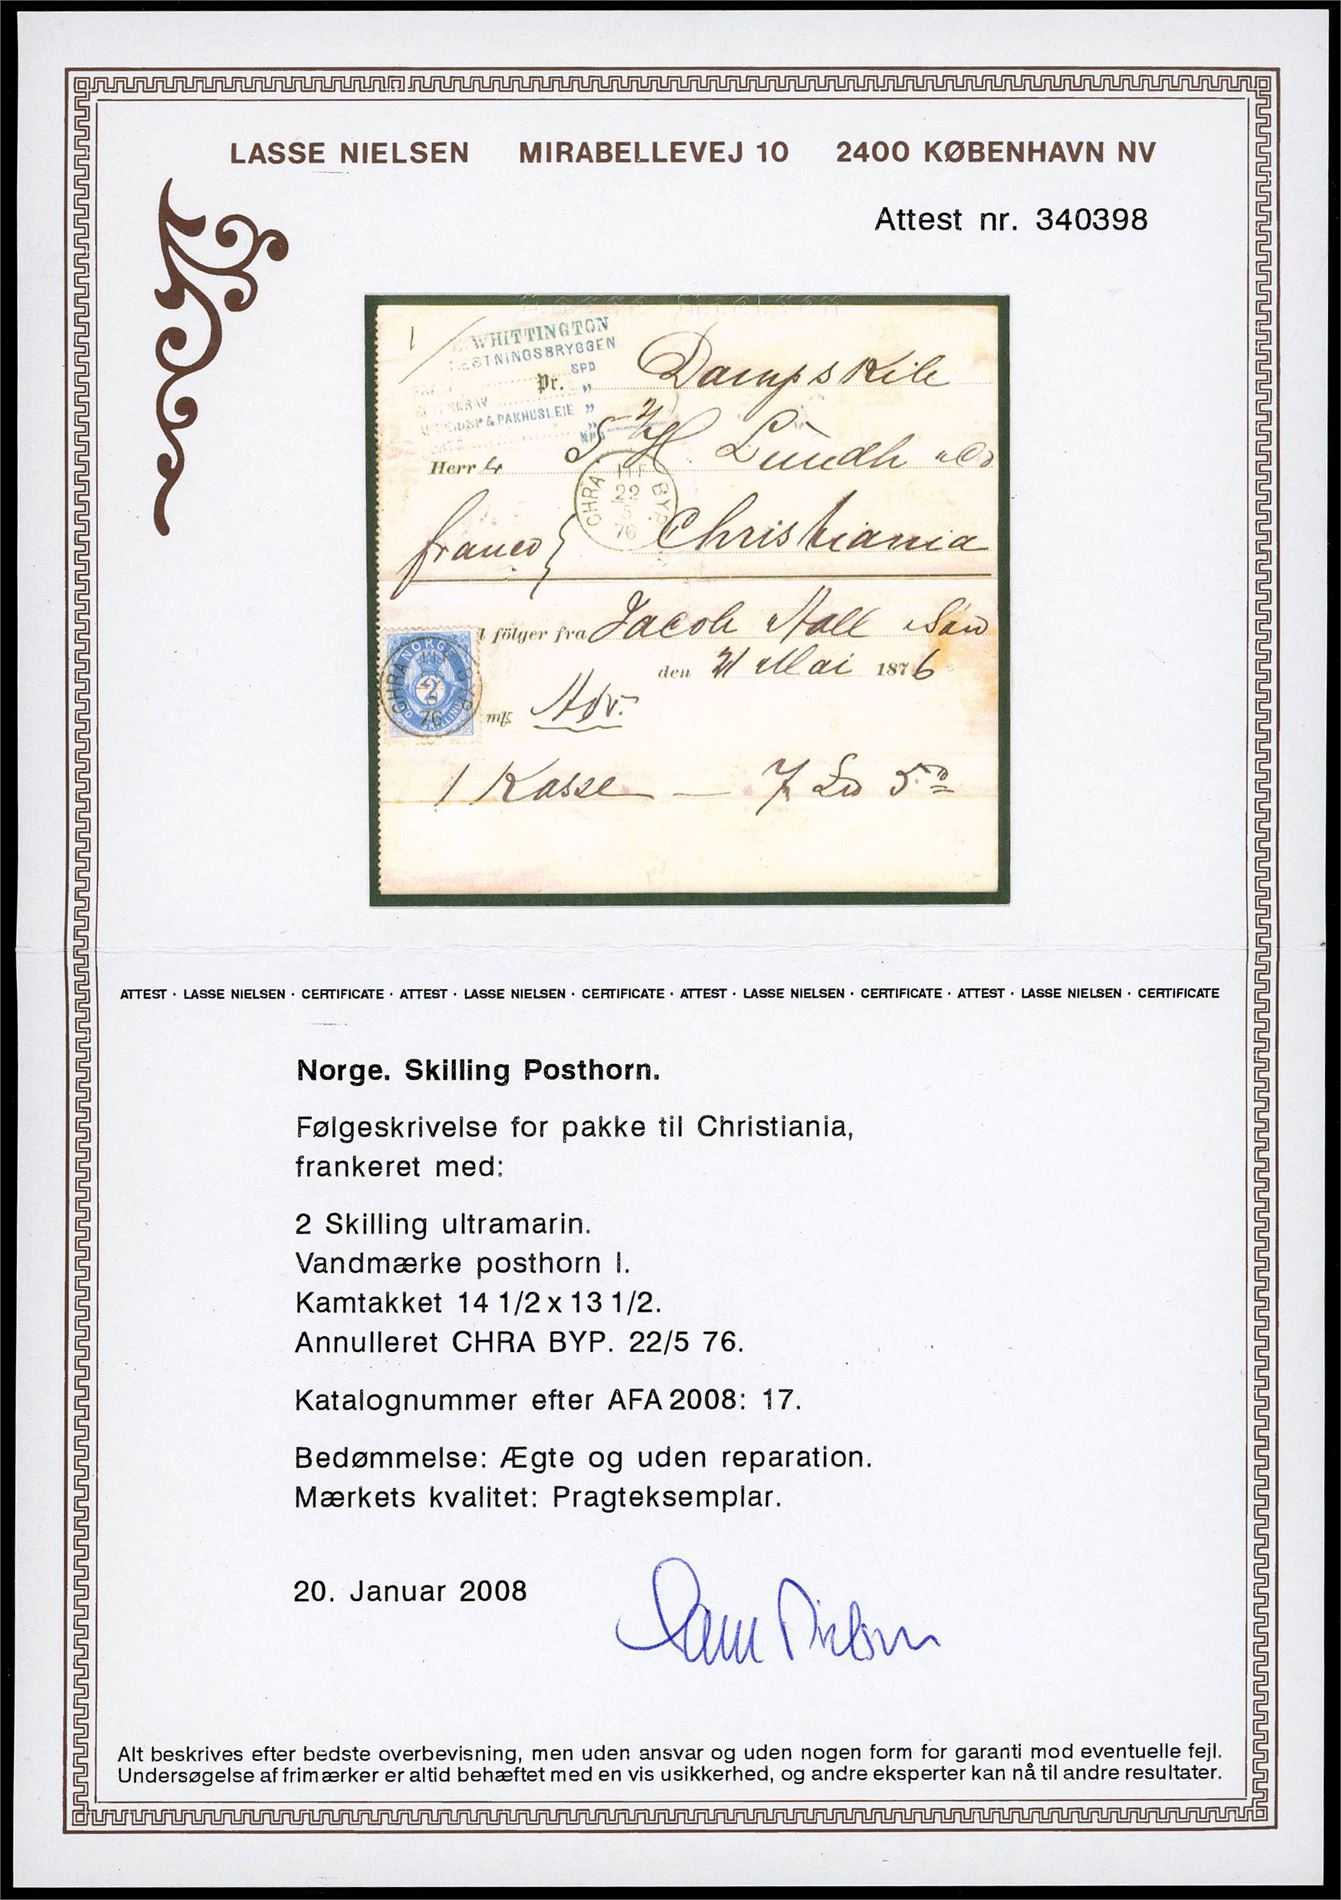 LASSE NIELSEN MIRABELLEVEJ 10 2400 KØBENHAVN NV
Attest nr. 340398
WHITTINGTON
FÆSTNINGSBRYGGEN
SPD
Pr. Dampskib
& PAKHUSLEIE "
Herr H. Lundh & Co
CHRA BYP. 22 5 76
franco Christiania
følger fra Jacob Aall & Søn
den 21 Mai 1876
NORGE 2 SKILLING
CHRA BYP 76
mk Adr.
1 Kasse — 7
ATTEST · LASSE NIELSEN · CERTIFICATE · ATTEST · LASSE NIELSEN · CERTIFICATE · ATTEST · LASSE NIELSEN · CERTIFICATE · ATTEST · LASSE NIELSEN · CERTIFICATE
Norge. Skilling Posthorn.
Følgeskrivelse for pakke til Christiania,
frankeret med:
2 Skilling ultramarin.
Vandmærke posthorn I.
Kamtakket 14 1/2 x 13 1/2.
Annulleret CHRA BYP. 22/5 76.
Katalognummer efter AFA 2008: 17.
Bedømmelse: Ægte og uden reparation.
Mærkets kvalitet: Pragteksemplar.
20. Januar 2008
Lasse Nielsen
Alt beskrives efter bedste overbevisning, men uden ansvar og uden nogen form for garanti mod eventuelle fejl.
Undersøgelse af frimærker er altid behæftet med en vis usikkerhed, og andre eksperter kan nå til andre resultater.